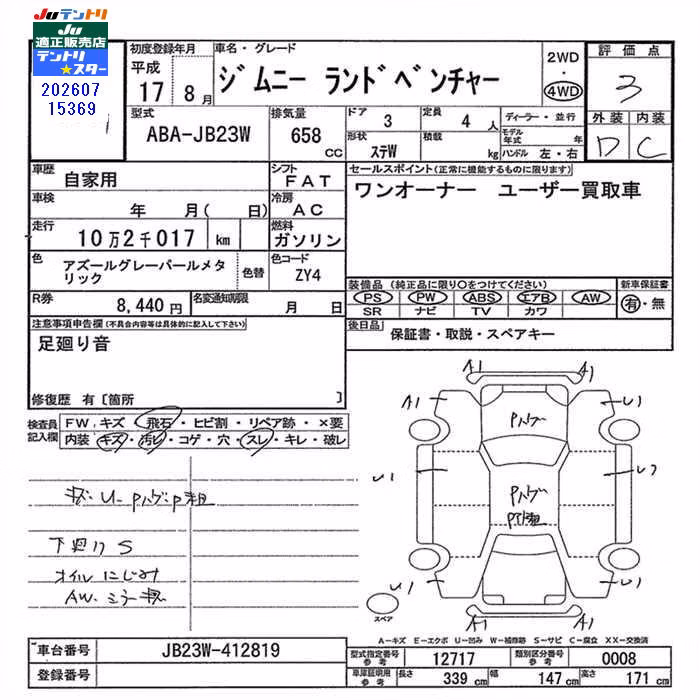 JUテントリ
Ju
適正販売店
テントリ
★スター
202607
15369
初度登録年月
平成
17 8月
車名・グレード
ジムニー ランドベンチャー
2WD
・
4WD
評価点
3
型式
ABA-JB23W
排気量
658
CC
ドア
3
定員
4 人
ディーラー・並行
形状
ステW
積載
kg
モデル
年式 年
ハンドル 左・右
外装 内装
D C
車歴
自家用
シフト
FAT
セールスポイント(正常に機能するものに限ります)
ワンオーナー ユーザー買取車
車検
年 月( 日)
冷房
AC
走行
10万2千017 km
燃料
ガソリン
色
アズールグレーパールメタ
リック
色替
色コード
ZY4
装備品(純正品に限り○をつけてください)
PS PW ABS エアB AW
SR ナビ TV カワ
新車保証書
有・無
R券
8,440円
名変通知期限
月 日
後日品
保証書・取説・スペアキー
注意事項申告欄(不具合内容等は具体的に記入して下さい)
足廻り音
修復歴 有〔箇所 〕
検査員
記入欄
FW キズ・飛石・ヒビ割・リペア跡・×要
内装 キズ・汚レ・コゲ・穴・スレ・キレ・破レ
A1 A1
A1 U1
Pハゲ
U1
Pハゲ
U1 U1
A1 A1
下廻りS
オイルにじみ
AW・ミラーキズ
スペア
A-キズ E-エクボ U-凹み W-補修跡 S-サビ C-腐食 XX-交換済
車台番号
JB23W-412819
登録番号
型式指定番号
参考
12717
類別区分番号
参考
0008
車庫証明用
参考
長さ
339 cm
幅
147 cm
高さ
171 cm